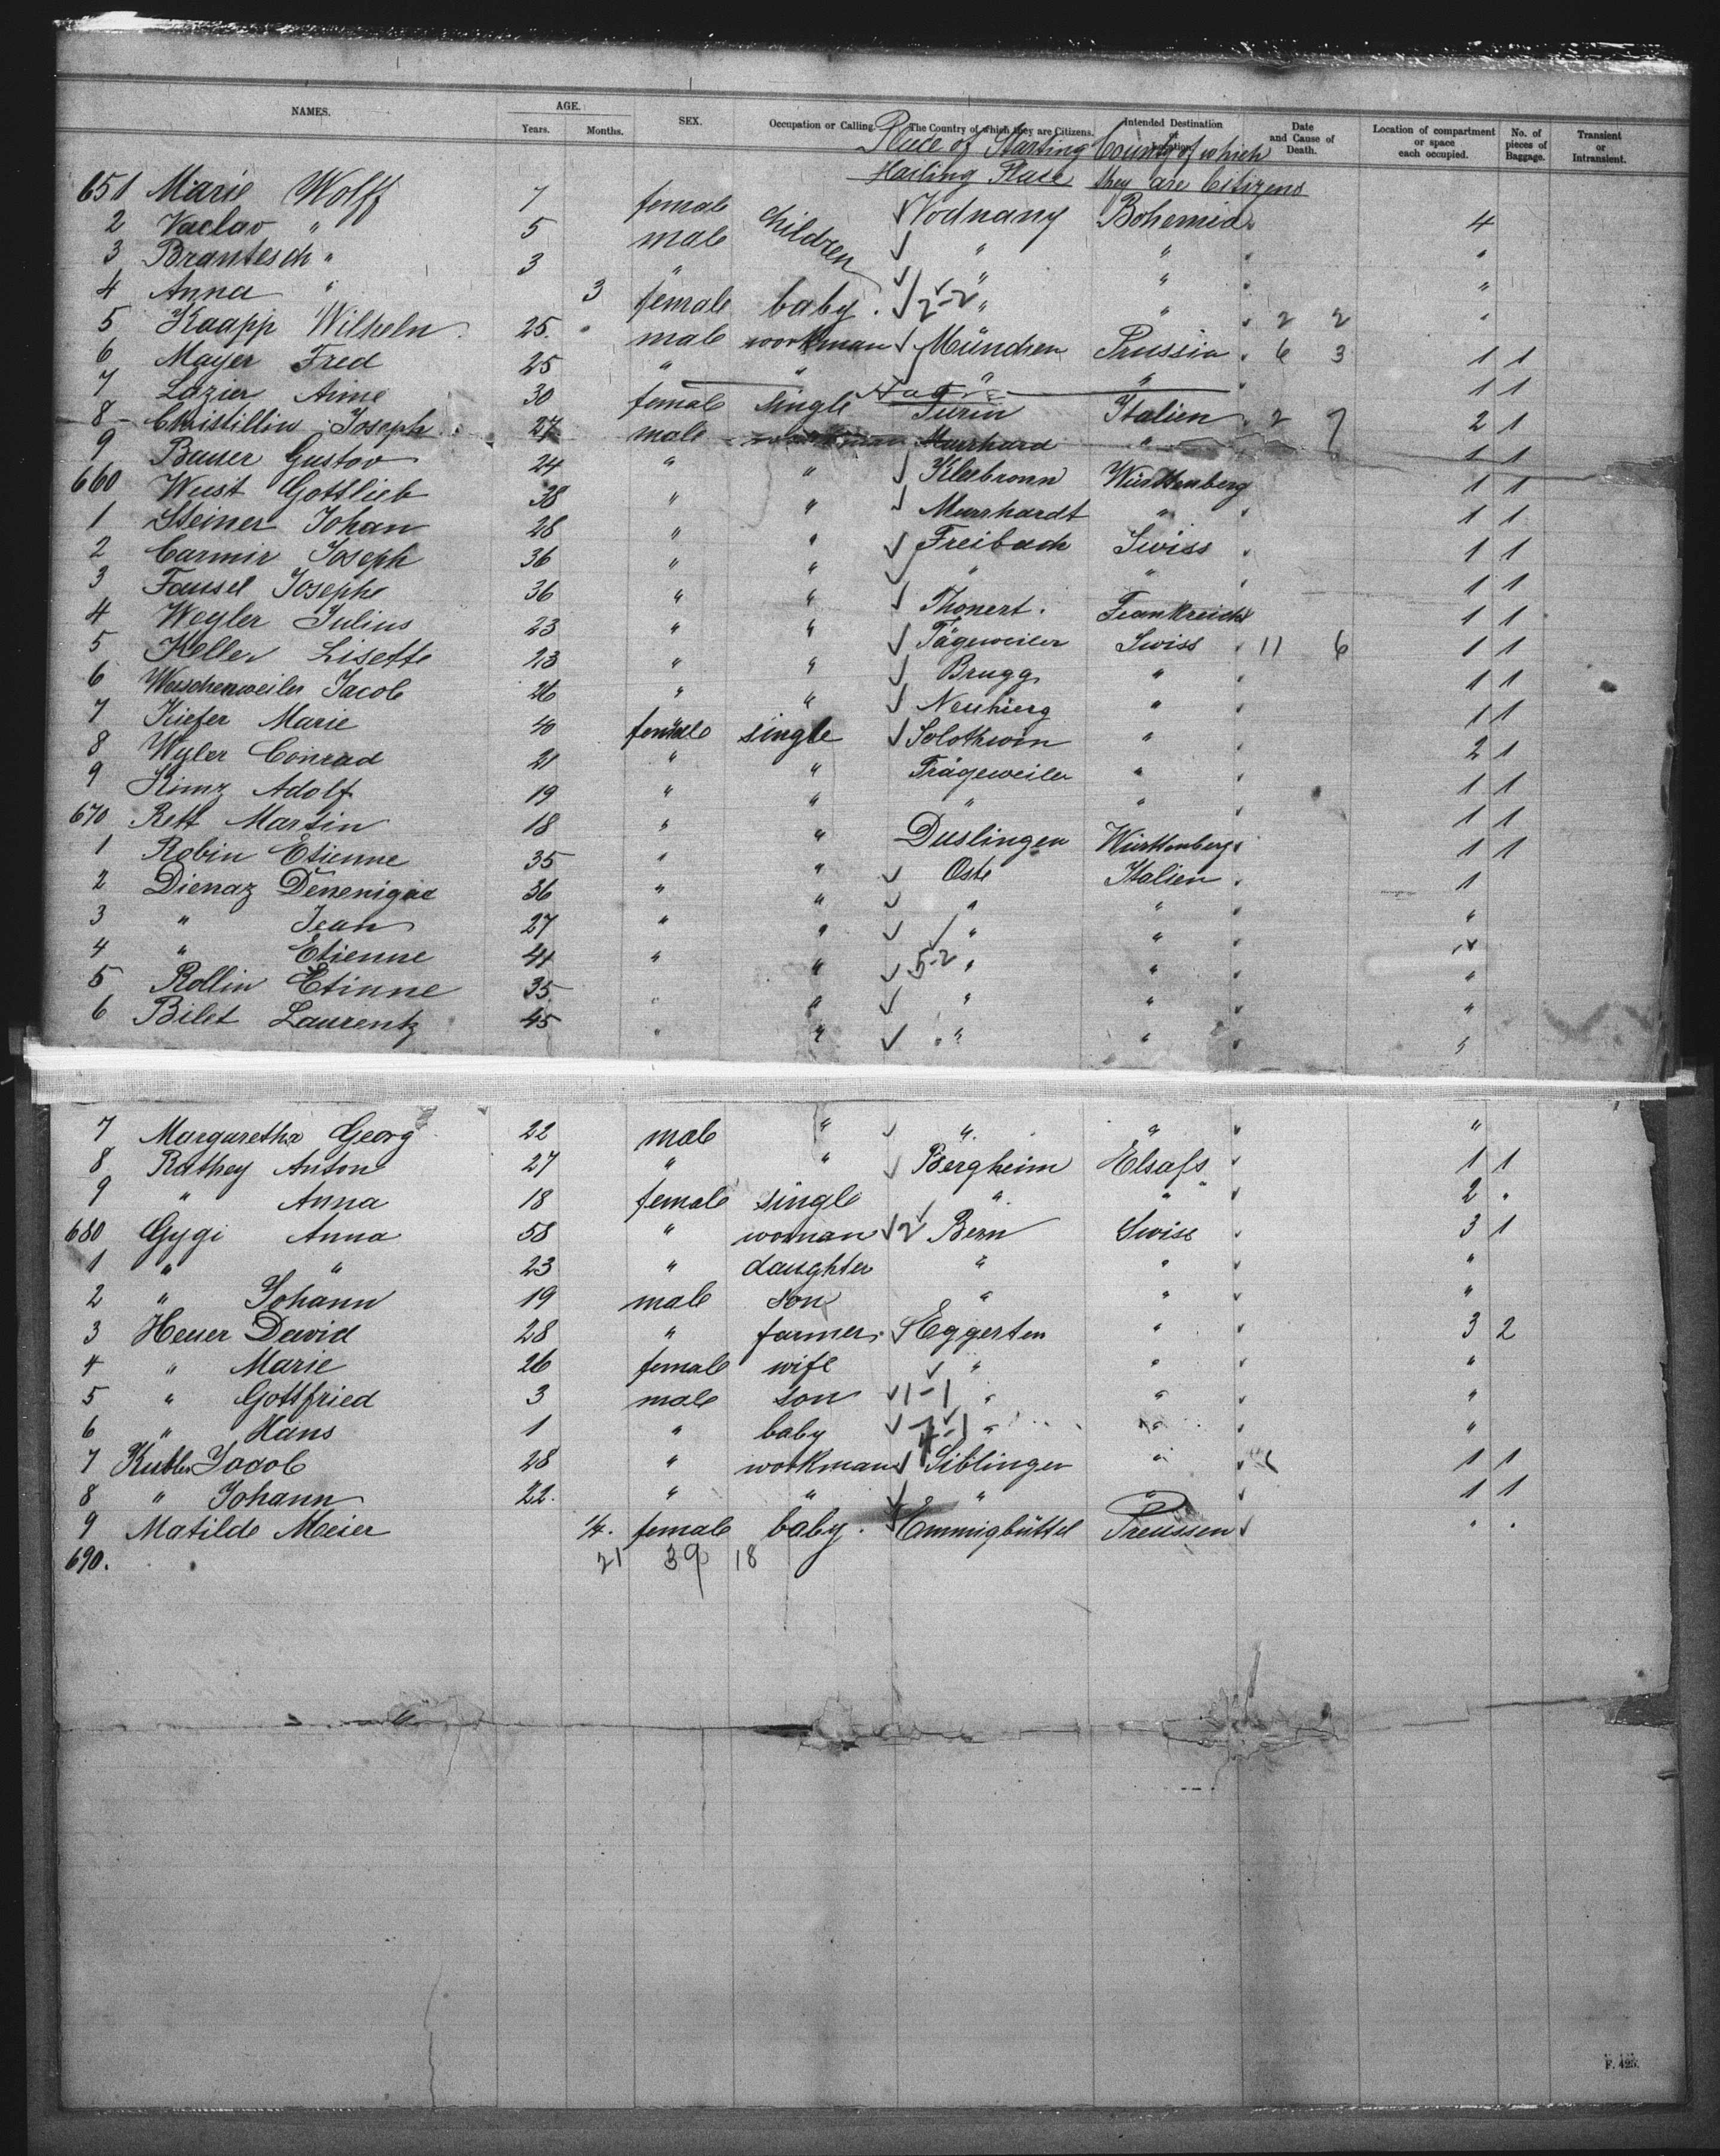 NAMES. AGE. Years. Months. SEX. Occupation or Calling. The Country of which they are Citizens. Intended Destination or Location. Date and Cause of Death. Location of compartment or space each occupied. No. of pieces of Baggage. Transient or Intransient.
Place of Starting County of which
Hailing Place they are Citizens
651 Marie Wolff 7 female children Vodnany Bohemia 4
2 Vaclav " 5 male " " "
3 Brantesch " 3 " " " "
4 Anna " 3 female baby. 2-2 " " 2 2 "
5 Kaapp Wilheln 25. male workman München Prussia 6 3 1 1
6 Mayer Fred 25 " " " " 1 1
7 Lazier Aime 30 female single Turin Italien 2 7 2 1
8 Christillin Joseph 27 male workman Murrhard " 1 1
9 Bauser Gustov 24 " " Kleebronn Württenberg 1 1
660 Weist Gottlieb 38 " " Murrhardt " 1 1
1 Steiner Johan 28 " " Freibach Swiss 1 1
2 Carmir Joseph 36 " " " " 1 1
3 Faussel Josephe 36 " " Thonert. Frankreich 1 1
4 Wegler Julius 23 " " Tägeweiler Swiss 11 6 1 1
5 Keller Lisette 23 " " Brugg " 1 1
6 Weischenweiler Jacob 26 " " Neuhierg " 1 1
7 Kiefer Marie 40 female single Solothurn " 2 1
8 Wyler Conrad 21 " " Trägeweiler " 1 1
9 Kimz Adolf 19 " " " " 1 1
670 Rett Martin 18 " " Duslingen Württenberg 1 1
1 Robin Etienne 35 " " Oste Italien 1
2 Dienaz Denenigae 36 " " " " "
3 " Jean 27 " " " " "
4 " Etienne 41 " " 5-2 " " "
5 Rollin Etinne 35. " " " " "
6 Bilet Laurentz 45 " " " " "
7 Margaretha Georg 22 male " " " "
8 Rathey Anton 27 " " Bergheim Elsass 1 1
9 " Anna 18 female single " " 2 "
680 Gygi Anna 58 " woman 2 Bern Swiss 3 1
1 " " 23 " daughter " " "
2 " Johann 19 male son " " "
3 Heuer David 28 " farmer. Eggerten " 3 2
4 " Marie 26 female wife " " "
5 " Gottfried 3 male son 1-1 " " "
6 " Hans 1 " baby 1-1 " " "
7 Kubler Jacob 28 " workman Siblingen " 1 1
8 " Johann 22. " " " " 1 1
9 Matilde Meier 1/4. female baby. Emmigbüttel Preussen " "
690. 21 39 18
F. 425.